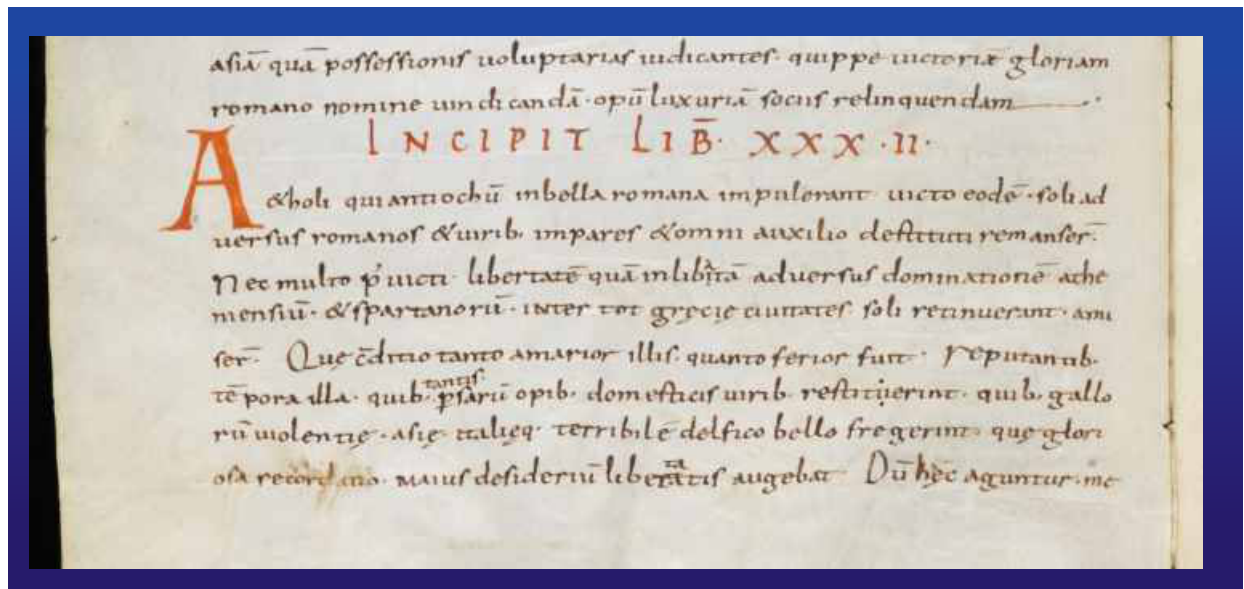 asiā quā possessionis uoluptarias iudicantes· quippe uictoriæ gloriam
romano nomine uindicandā· opū luxuriā sociis relinquendam
INCIPIT LIB̄· XXX·II·
A&holi qui antiochū in bella romana impulerant uicto eodē· soli ad
uersus romanos & uirib· impares & omni auxilio destituti remanser̄·
Nec multo p̓ uicti· libertatē quā inlibatā aduersus dominationē athe
niensiū· & spartanorū· inter tot gręcię ciuitates soli retinuerant· ami
ser̄· Quę c̄ditio tanto amarior illis· quanto serior fuit· reputantib·
tēpora illa· quib· tantis psarū opib· domesticis uirib· restituerint· quib· gallo
rū uiolentię· asię italięq· terribilē delfico bello fregerint· que glori
osa recordatio· maius desideriū libertatis augebat Dū hęc aguntur· me